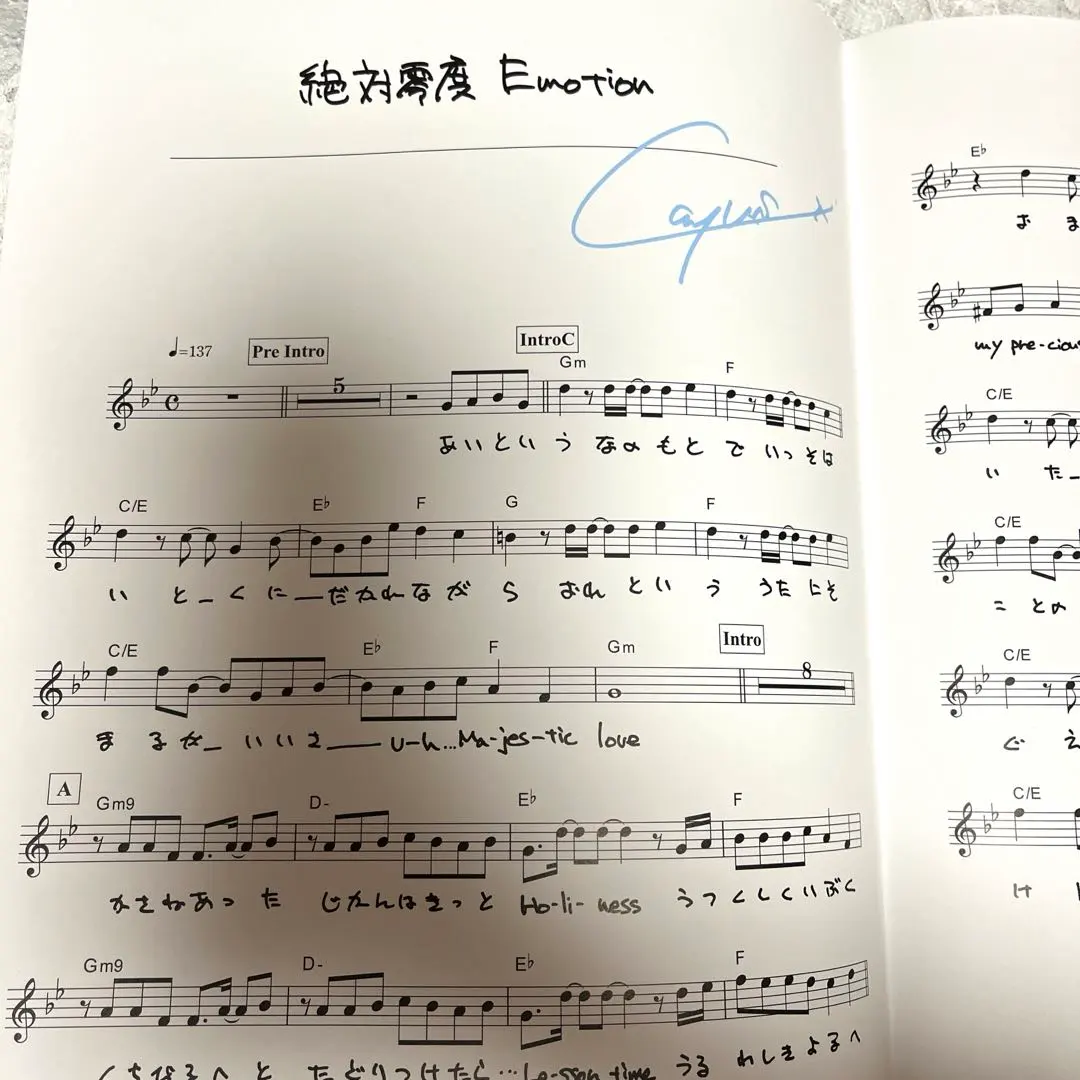 絶対零度 Emotion
♩=137
Pre Intro
IntroC
5
Gm F
あいという なのもと で いっそは
C/E E♭ F G F
い と_ くに_だかれながら おれという うたにそ
Intro
C/E E♭ F Gm
8
まるが_ いいさ_ U-h...Ma-jes-tic love
A
Gm9 D- E♭ F
かさねあった じかんはきっと Ho-li-ness うつくしくいぶく
Gm9 D- E♭ F
くちなるへと たどりつけたら...Le-sson time うる わしきよるへ
E♭
お ま
my pre-ciou
C/E
い た_
C/E
こ とめ
C/E
ぐ え
C/E
け